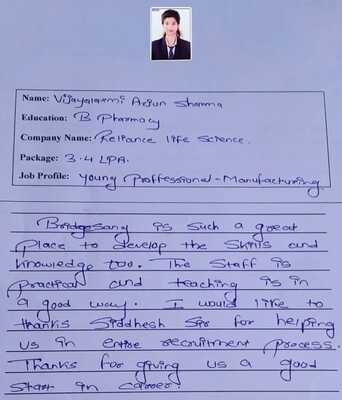 Name: Vijayalaxmi Arjun Sharma
Education: B Pharmacy
Company Name: Reliance life Science.
Package: 3.4 LPA.
Job Profile: Young Proffessional-Manufacturing.
Bridgesang is such a great
Place to develop the Skills and
knowledge too. The Staff is
practical and teaching is in
a good way. I would like to
thanks Siddhesh Sir for helping
us in entire recruitment process.
Thanks for giving us a good
Start in career.